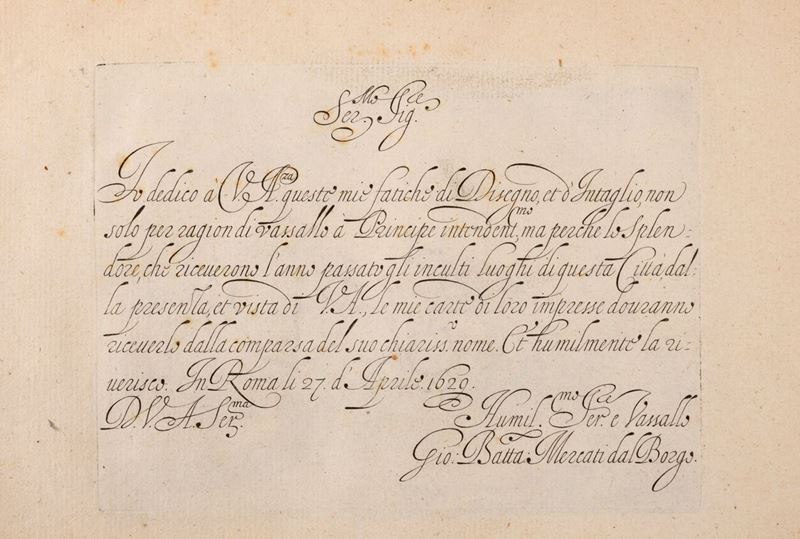 Ser.mo Sig.re
Io dedico à V. A.za queste mie fatiche di Disegno, et d'Intaglio, non
solo per ragion di vassallo à Principe intendent.mo, ma perche lo Splen-
dore, che riceuerono l'anno passato gli inculti luoghi di questa Città dal-
la presenza, et vista di V.A., le mie carte di loro impresse douranno
riceuerlo dalla comparsa del suo chiariss.o nome. Et humilmente la ri-
uerisco. In Roma li 27. d'Aprile 1629.
D.V.A. Ser.ma
Humil.mo Ser.re e Vassallo
Gio: Batta: Mercati dal Borgo.